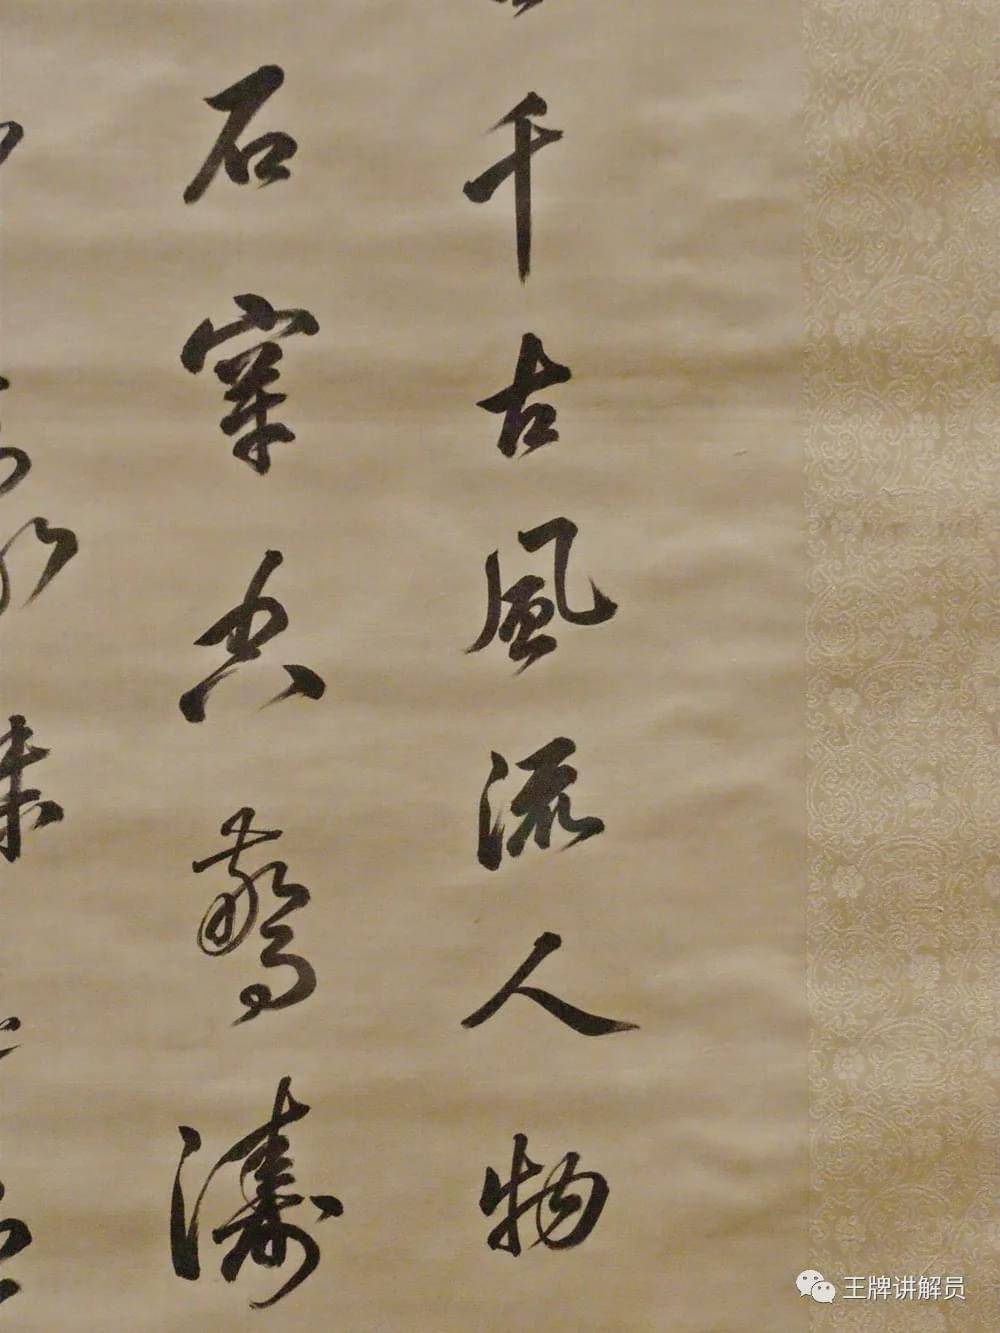 千古風流人物
石穿空驚濤
王牌讲解员